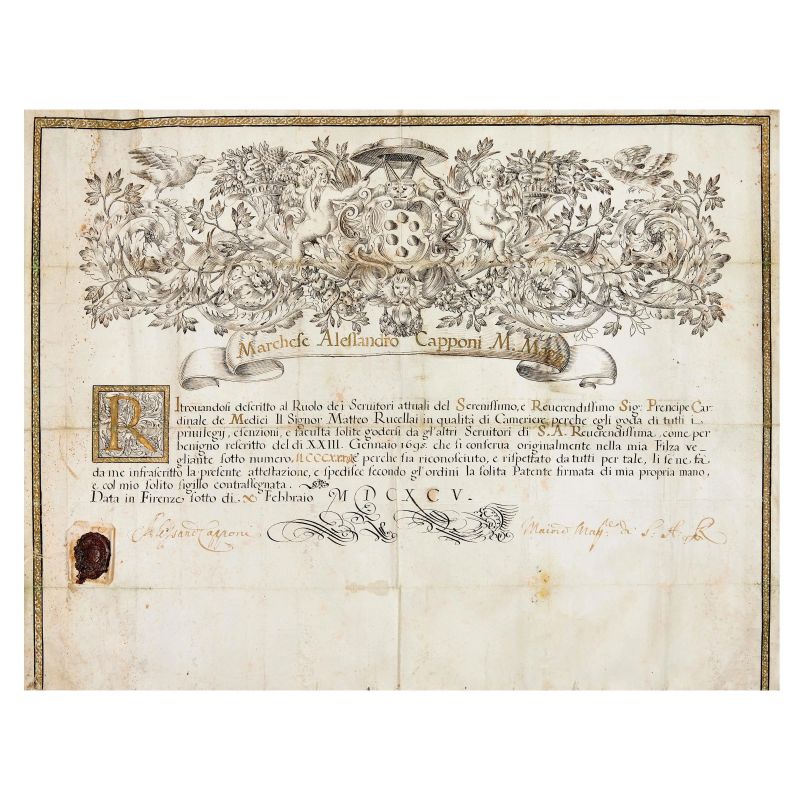 Marchese Alessandro Capponi M. Magg.
Ritrouandosi descritto al Ruolo dei Seruitori attuali del Serenissimo, e Reuerendissimo Sig: Prencipe Car-
dinale de Medici Il Signor Matteo Rucellai in qualità di Cameriere, perche egli goda di tutti i
priuilegij, esenzioni, e facultà solite godersi da gl'altri Seruitori di S.A. Reuerendissima, come per
benigno rescritto del di XXIII. Gennaio 1695. che si conserua originalmente nella mia Filza ve-
gliante sotto numero, e perche sia riconosciuto, e rispettato da tutti per tale, li se ne fà
da me infrascritto la presente attestazione, e spedisce secondo gl'ordini la solita Patente firmata di mia propria mano,
e col mio solito sigillo contrassegnata.
Data in Firenze sotto di Febbraio MDCXCV.
Alessand. Capponi Maiord. Magg.e di S: A: R